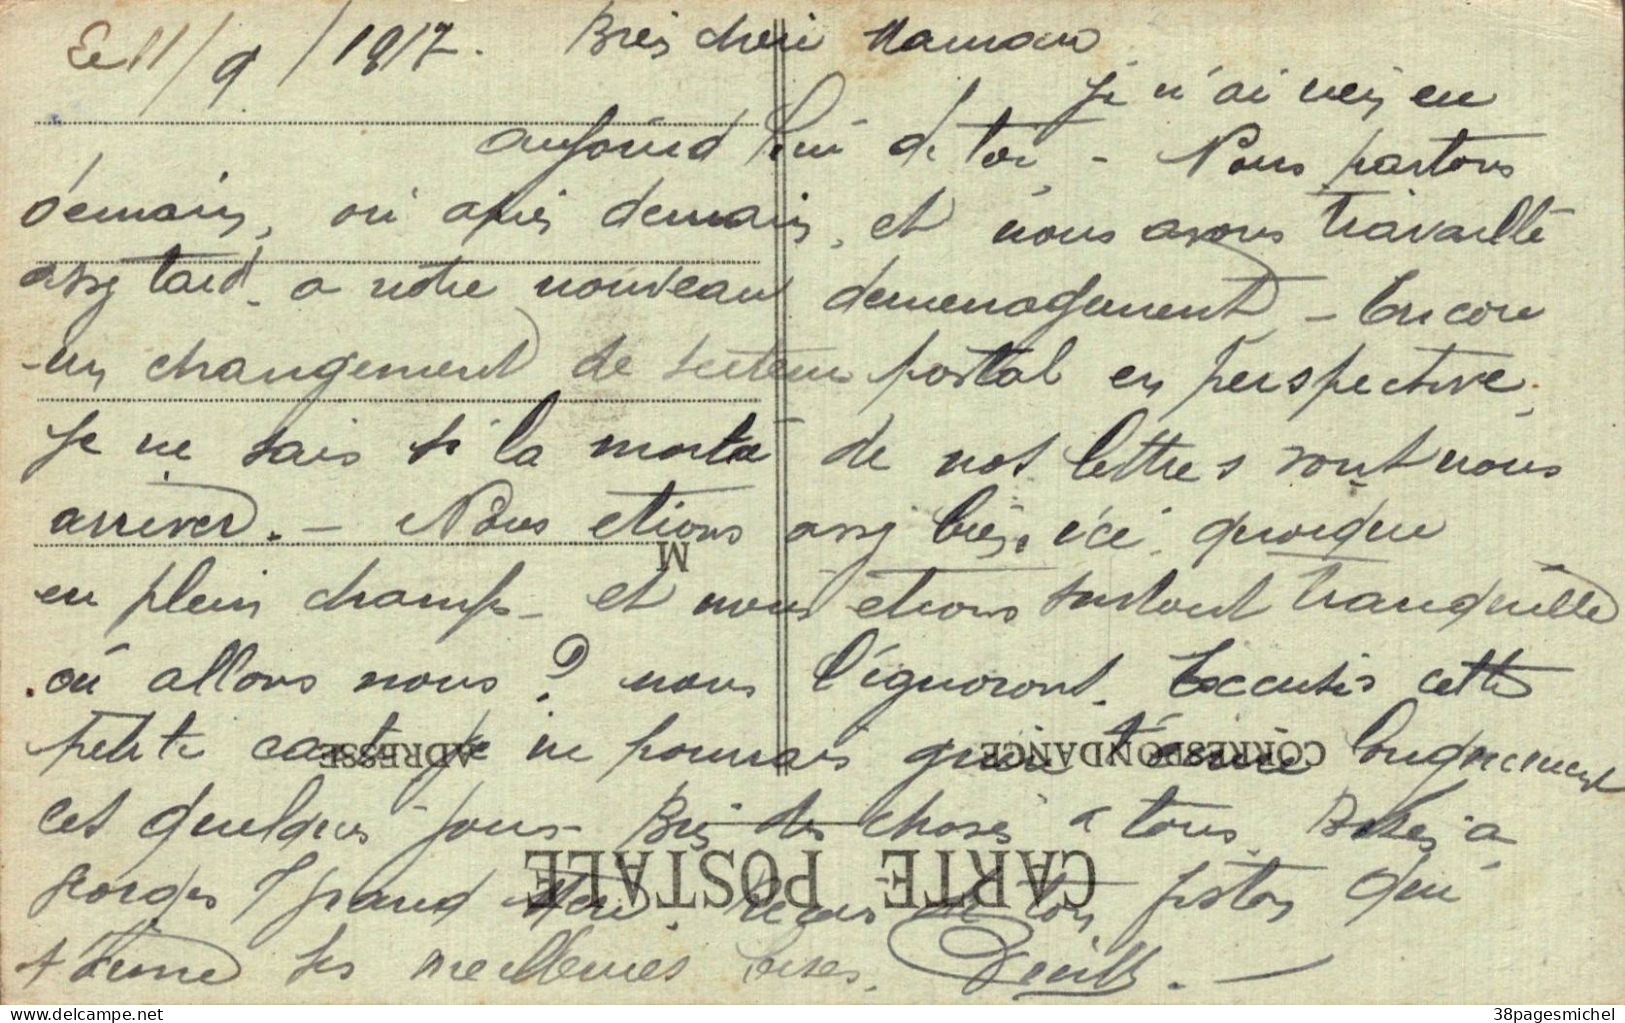 Le 11/9/1917. Très cheri Maman
Je n'ai rien eu
aujourd'hui de toi - Nous partons
demain, ou après demain, et nous avons travaillé
assez tard a notre nouveau demenagement - Encore
un changement de secteur postal en perspective.
Je ne sais si la moitié de nos lettres vont nous
arriver. - Nous etions assez bien ici quoique
en plein champs - et nous etions surtout tranquille
où allons nous? nous l'ignoront. Excuses cette
petite carte je ne pourrais guère t'écrire longuement
ces quelques jours - Bien des choses a tous. Baises a
Georges grand Mère. recois de ton fiston qui
t'aime ses meilleures baises.
M
ADRESSE
CORRESPONDANCE
CARTE POSTALE
38pagesmichel